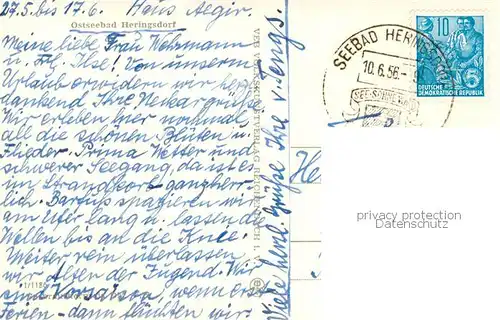 27.5. bis 17.6. Haus Aegir.
Ostseebad Heringsdorf
Meine liebe Frau Wehrmann
u. Frl. Ilse! Von unserm
Urlaub erwidern wir herz
dankend Ihre Neckargrüße
Wir erleben hier nochmal,
all die schönen Blüten u.
Flieder. Prima Wetter und
schwerer Seegang, da ist es
im Strandkorb ganz herr-
lich. Barfuß spazieren wir
am Ufer lang u. lassen die
Wellen bis an die Knie.
Weiter rein überlassen
wir Alten der Jugend. Wir
sind Vorsaison, wenn erst
Ferien - dann flüchten wir
VEB VERLAG REICHENBACH I. V.
Viele herzl Grüße Ihre v.
SEEBAD HERINGSDORF
10.6.56.
10
5
DEUTSCHE
DEMOKRATISCHE REPUBLIK
privacy protection
AnsichtskartenVersand.com